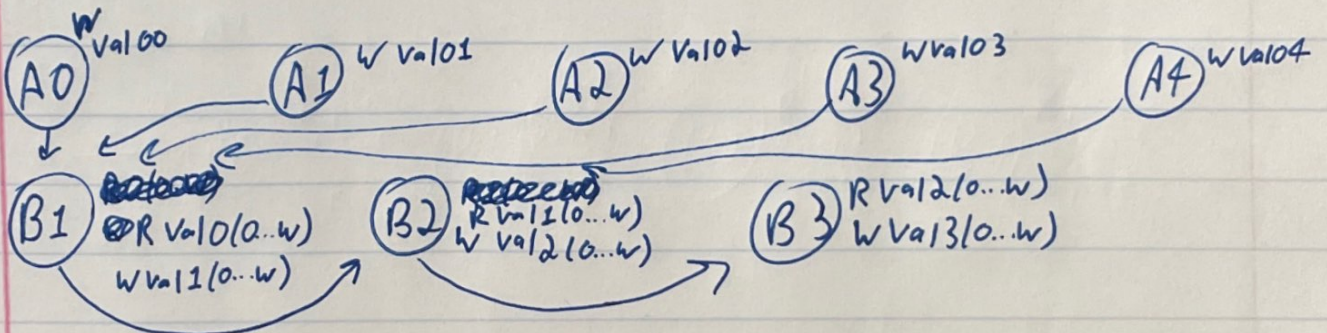 A0 W Val00
A1 W Val01
A2 W Val02
A3 W Val03
A4 W Val04
B1
R Val0(0...w)
W Val1(0...w)
B2
R Val1(0...w)
W Val2(0...w)
B3
R Val2(0...w)
W Val3(0...w)